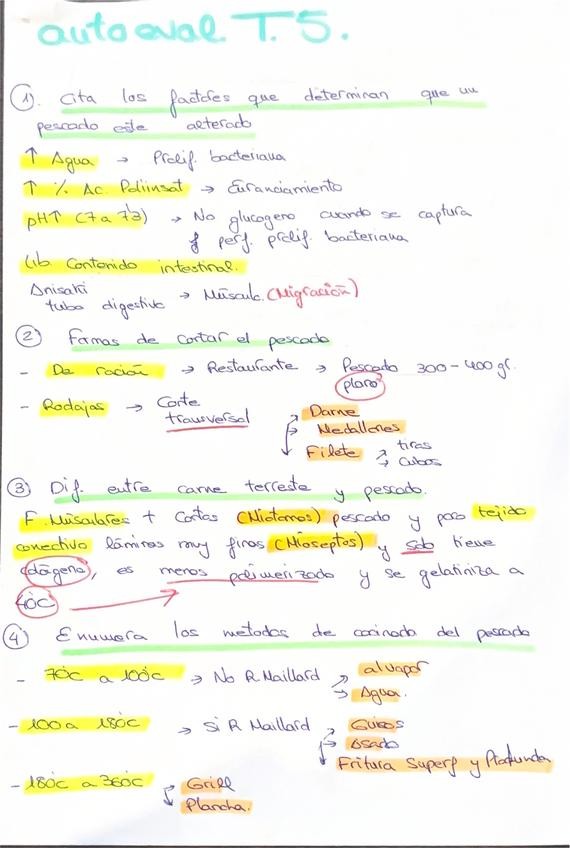 auto eval. T. 5.
1). Cita los factores que determinan que un
pescado este alterado
↑ Agua → Prolif. bacteriana
↑ % Ac. Poliinsat → Euranciamiento
pH↑ (7 a 7'3) → No glucogeno cuando se captura
perf. prolif. bacteriana
Lib Contenido intestinal.
Anisaki
tubo digestivo → Múscul. (Migración)
2) Formas de cortar el pescado
- De ración → Restaurante → Pescado 300-400gr.
plano
- Rodajas → Corte
transversal
→ Darne
→ Medallones
→ Filete → tiras
→ cubos
3) Dif. entre carne terreste y pescado.
F. Musculares + Cortas (Miotomos) pescado y poco tejido
conectivo láminas muy finas (Mioseptos) y solo tiene
colágeno, es menos polimerizado y se gelatiniza a
40ºC
4) Enumera los metodos de cocinado del pescado
- 70ºC a 100ºC → No R Maillard → al vapor
→ Agua.
- 100 a 180ºC → Si R Maillard → Guisos
→ Asado
→ Fritura Superf y Profunda
- 180ºC a 360ºC → Grill
→ Plancha.